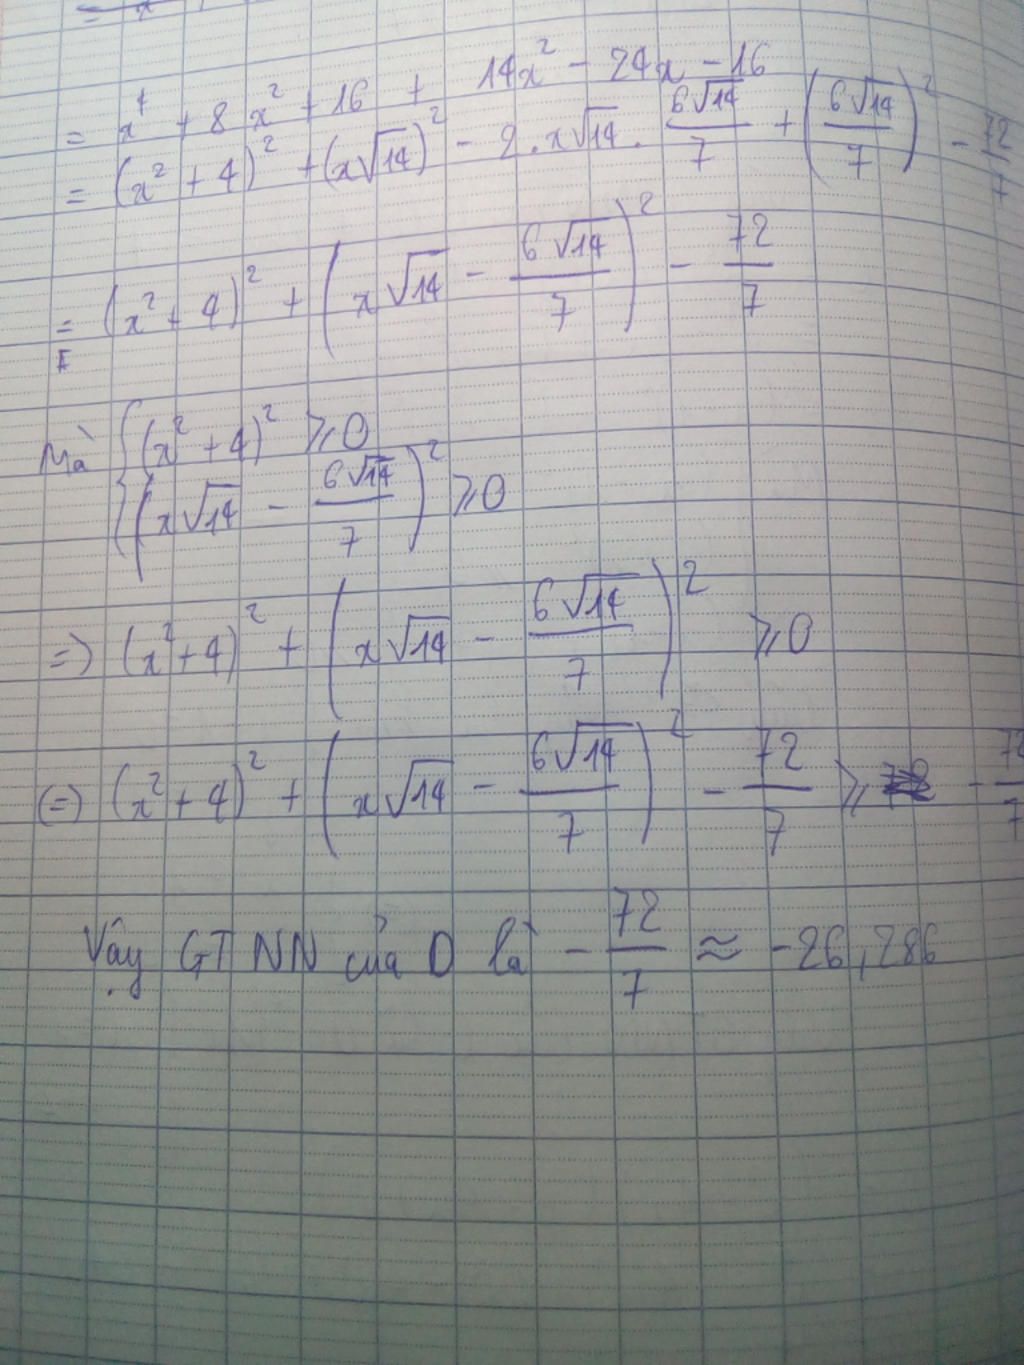 = x⁴ + 8x² + 16 + 14x² - 24x - 16
= (x² + 4)² + (x√14)² - 2.x√14. 6√14/7 + (6√14/7)² - 72/7
= (x² + 4)² + (x√14 - 6√14/7)² - 72/7
Mà { (x² + 4)² ≥ 0
(x√14 - 6√14/7)² ≥ 0
=> (x² + 4)² + (x√14 - 6√14/7)² ≥ 0
(=) (x² + 4)² + (x√14 - 6√14/7)² - 72/7 ≥ - 72/7
Vậy GTNN của D là - 72/7 ≈ -26,286